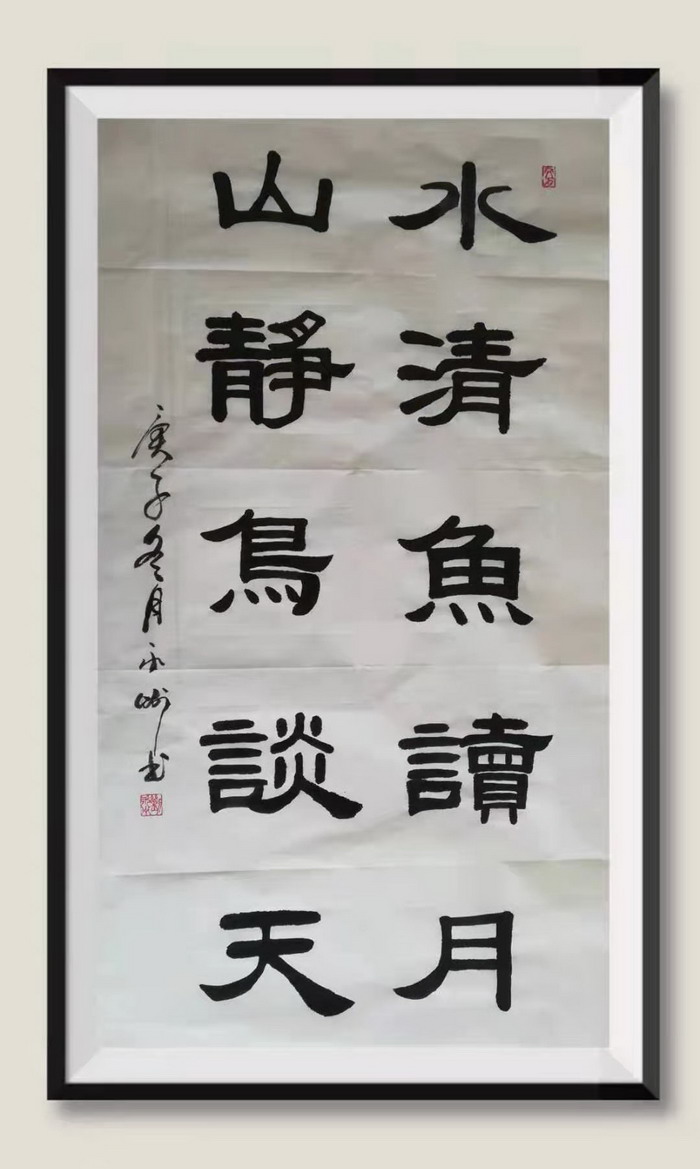 水清魚讀月
山靜鳥談天
庚子冬月永州書